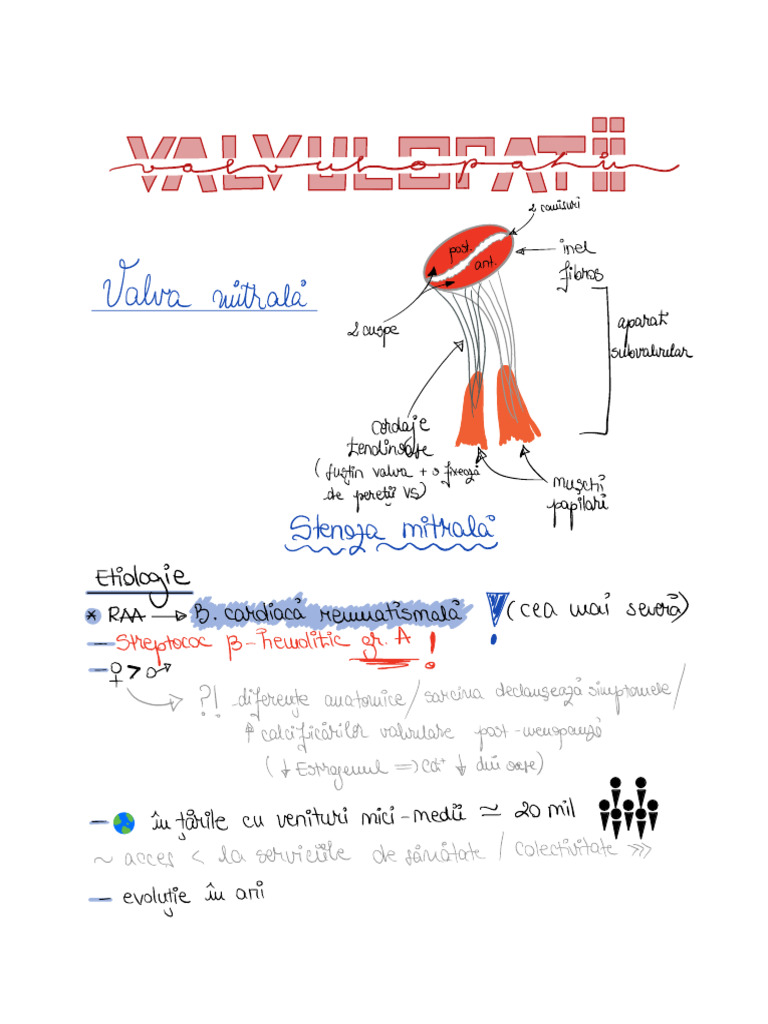 VALVULOPATII
valvulopatii
2 comisuri
post.
ant.
inel
fibros
Valva mitrală
2 cuspe
aparat
subvalvular
Cordaje
tendinoase
(susțin valva + o fixează
de pereții VS)
mușchi
papilari
Stenoza mitrală
Etiologie
* RAA → B. cardiacă reumatismală ! (cea mai severă)
– Streptococ β-hemolitic gr. A !
– ♀ > ♂
?! diferențe anatomice / sarcina declanșează simptomele /
↑ calcificărilor valvulare post-menopauză
(↓ Estrogenul => Ca²⁺ ↓ din oase)
– în țările cu venituri mici-medii ≃ 20 mil
~ acces < la serviciile de sănătate / colectivitate >>>
– evoluție în ani